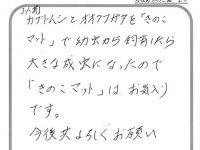 カブトムシとオオクワガタを「きのこ
マット」で幼虫から飼育したら
大きな成虫になったので
「きのこマット」は、お気入り
です。
今後共よろしくお願い